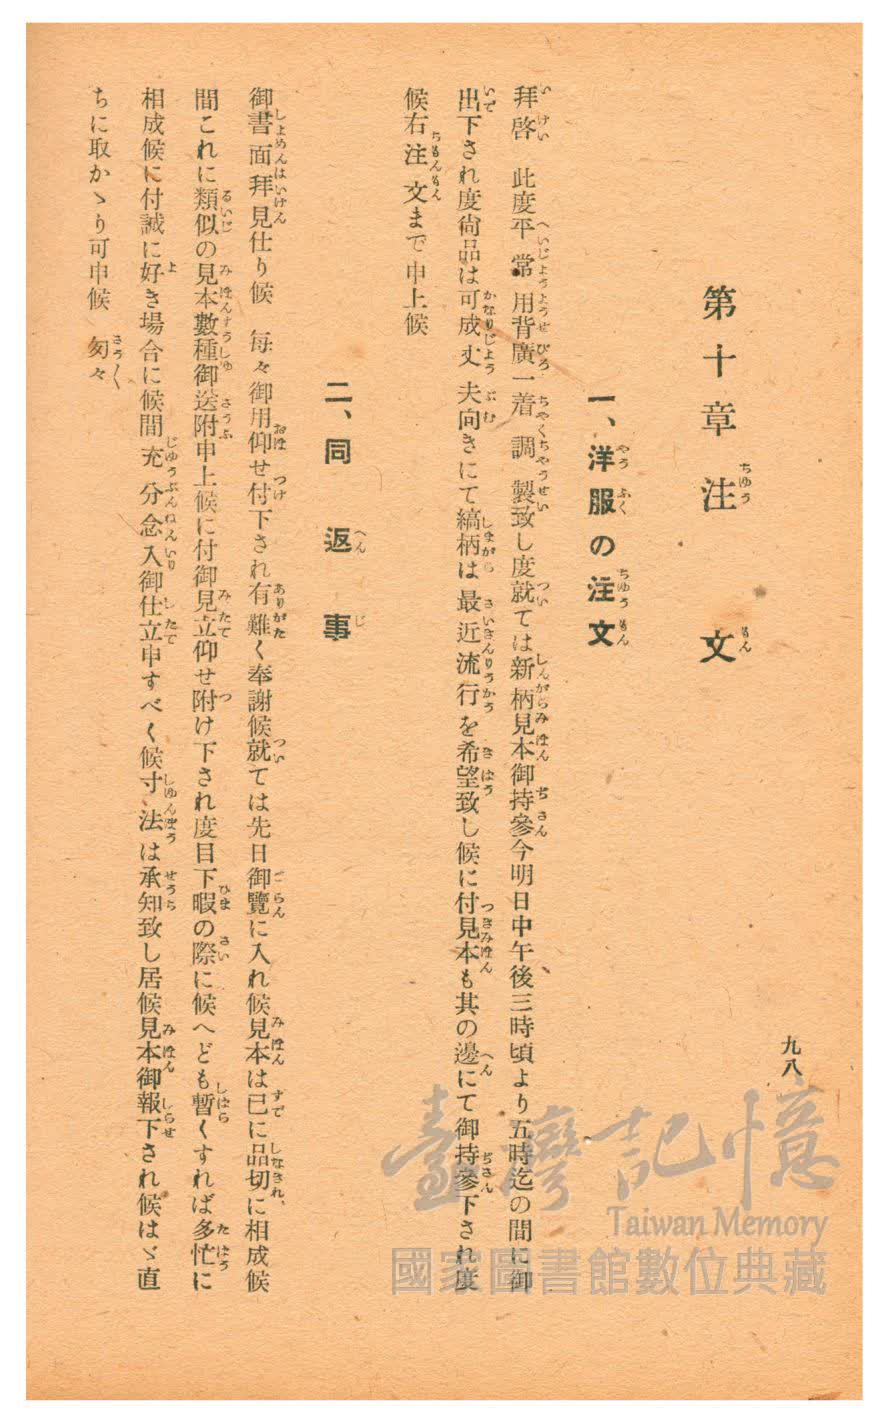 九八
第十章 注文
一、洋服の注文
拜啓 此度平常用背廣一着調製致し度就ては新柄見本御持參今明日中午後三時頃より五時迄の間に御
出下され度尙品は可成丈夫向きにて縞柄は最近流行を希望致し候に付見本も其の邊にて御持參下され度
候右注文まで申上候
二、同返事
御書面拜見仕り候 每々御用仰せ付下され有難く奉謝候就ては先日御覽に入れ候見本は已に品切に相成候
間これに類似の見本數種御送附申上候に付御見立仰せ附け下され度目下暇の際に候へども暫くすれば多忙に
相成候に付誠に好き場合に候間充分念入御仕立申すべく候寸法は承知致し居候見本御報下され候はゞ直
ちに取かゝり可申候 匆々
臺灣記憶
Taiwan Memory
國家圖書館數位典藏